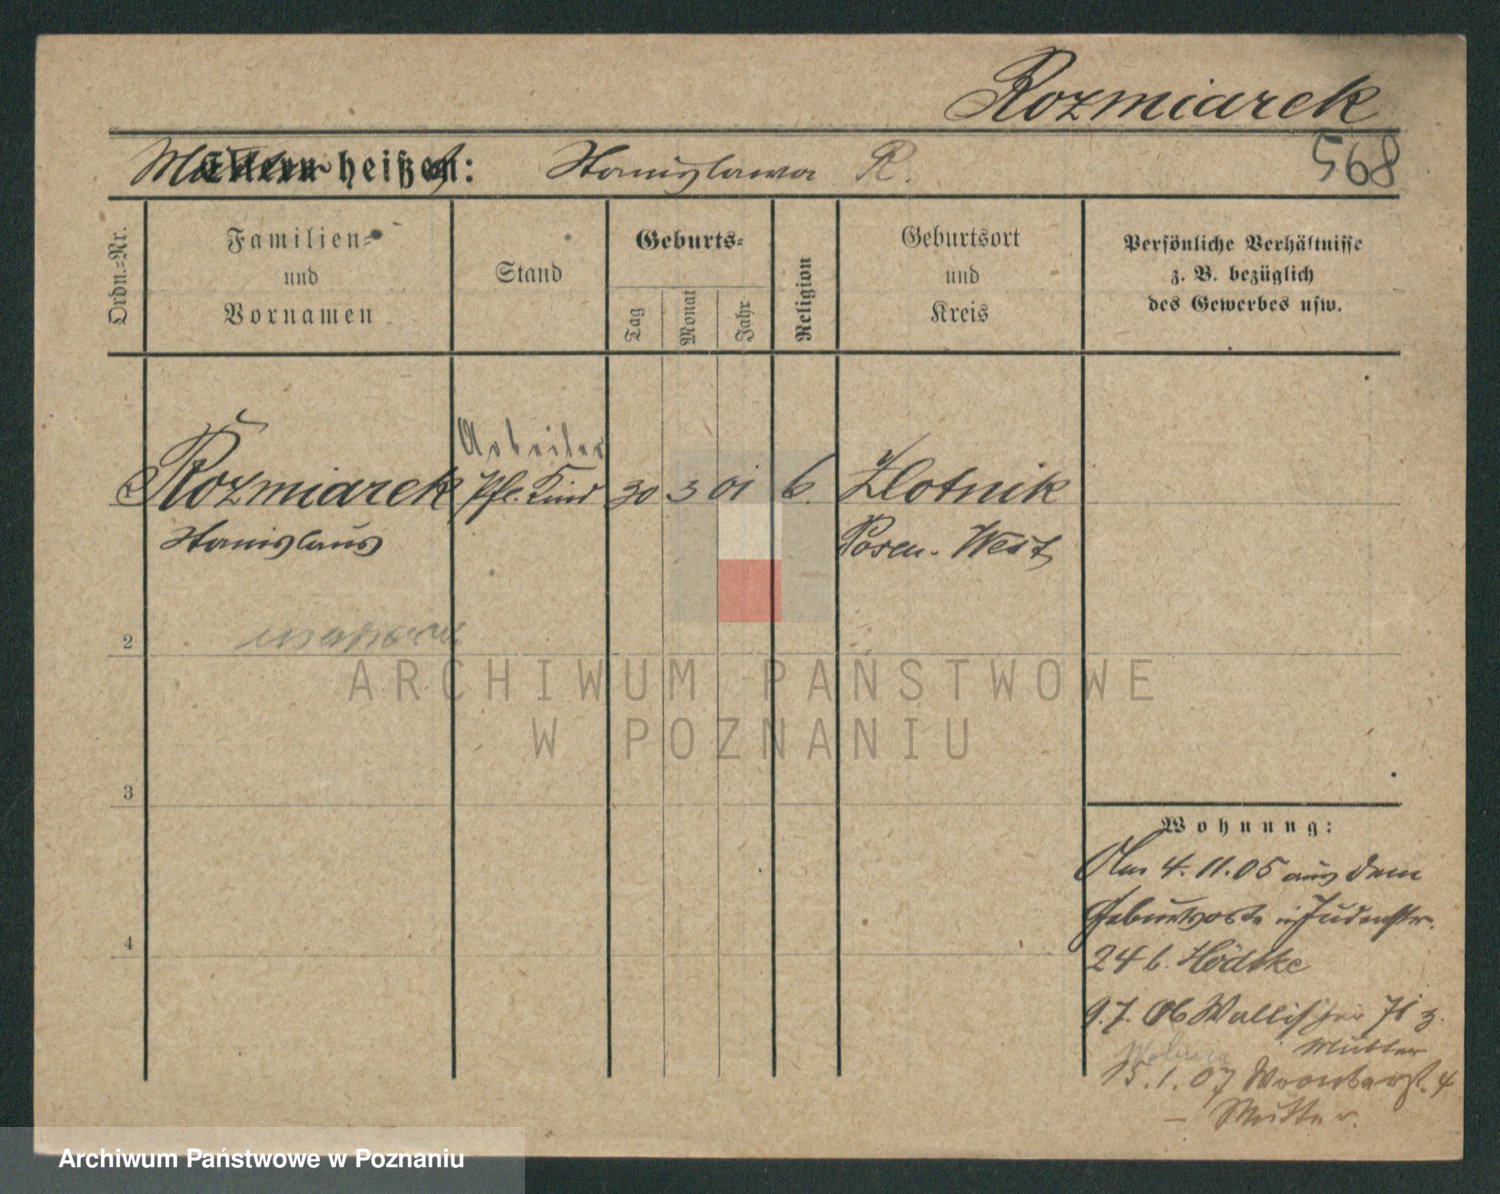 Rozmiarek
568
Mutter heißt: Stanislawa R.
Ordn.-Nr.
Familien-
und
Vornamen
Stand
Geburts-
Tag
Monat
Jahr
Religion
Geburtsort
und
Kreis
Persönliche Verhältnisse
z. B. bezüglich
des Gewerbes usw.
Arbeiter
Rozmiarek Pfl. Kind 30 3 01 6. Zlotnik
Stanislaus Posen-West
2
3
4
Wohnung:
Am 4.11.05 aus dem
Geburtsorte in Judenstr.
24 b. Hödtke
9.7.06 Wallischei 71 z.
Mutter
15.1.07 Wronkerst. 4
– Mutter.
ARCHIWUM PAŃSTWOWE
W POZNANIU
Archiwum Państwowe w Poznaniu